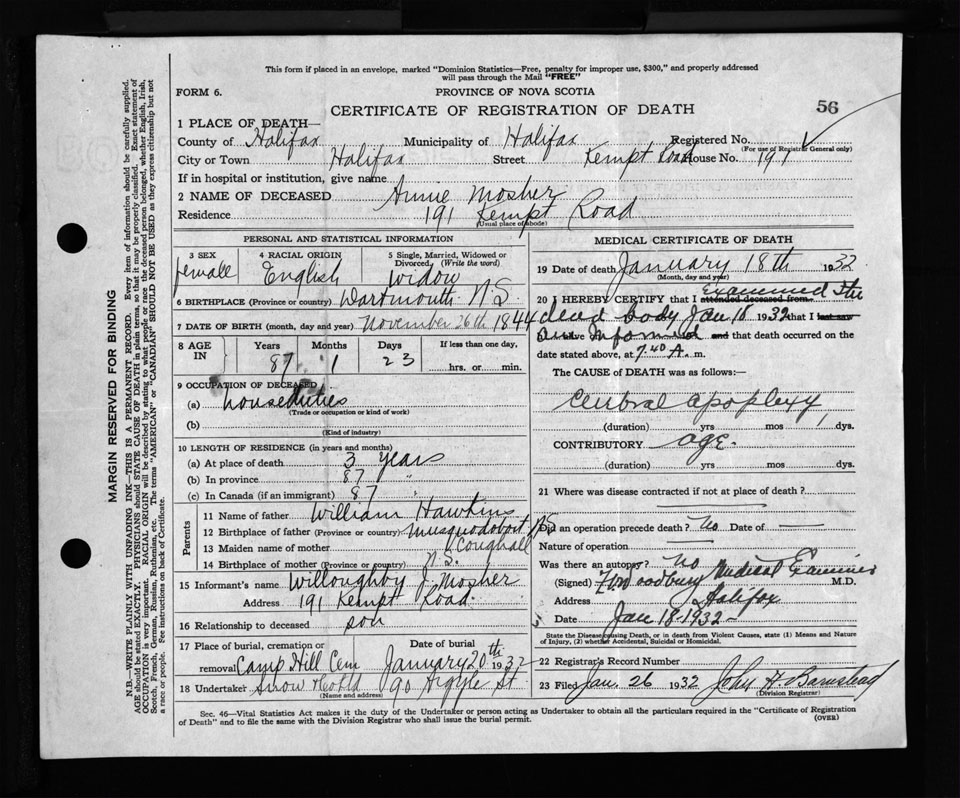 This form if placed in an envelope, marked "Dominion Statistics—Free, penalty for improper use, $300," and properly addressed
will pass through the Mail "FREE"
FORM 6.
PROVINCE OF NOVA SCOTIA
CERTIFICATE OF REGISTRATION OF DEATH
56
1 PLACE OF DEATH—
County of Halifax Municipality of Halifax Registered No.
(For use of Registrar General only)
City or Town Halifax Street Kempt Road House No. 191
If in hospital or institution, give name
2 NAME OF DECEASED Annie Mosher
Residence 191 Kempt Road
(Usual place of abode)
PERSONAL AND STATISTICAL INFORMATION
3 SEX female
4 RACIAL ORIGIN English
5 Single, Married, Widowed or Divorced, (Write the word) widow
6 BIRTHPLACE (Province or country) Dartmouth N.S.
7 DATE OF BIRTH (month, day and year) November 26th 1844
8 AGE IN Years 87 Months 1 Days 23 If less than one day, hrs. or min.
9 OCCUPATION OF DECEASED
(a) house duties
(Trade or occupation or kind of work)
(b)
(Kind of industry)
10 LENGTH OF RESIDENCE (in years and months)
(a) At place of death 3 years
(b) In province 87 "
(c) In Canada (if an immigrant) 87 "
Parents
11 Name of father William Hawkins
12 Birthplace of father (Province or country) Musquodoboit N.S
13 Maiden name of mother
14 Birthplace of mother (Province or country) N.S.
15 Informant's name Willoughby J. Mosher
Address 191 Kempt Road.
16 Relationship to deceased son
17 Place of burial, cremation or removal Camp Hill Cem Date of burial January 20th 1932
18 Undertaker Snow & Co Ltd 90 Argyle St.
(Name and address)
MEDICAL CERTIFICATE OF DEATH
19 Date of death January 18th 1932
(Month, day and year)
20 I HEREBY CERTIFY that I attended deceased from Examined the
dead body Jan 18 1932 that I last saw
Informed and that death occurred on the
date stated above, at 7.40 A. m.
The CAUSE OF DEATH was as follows:—
Cerebral apoplexy
(duration) yrs mos dys.
CONTRIBUTORY age.
(duration) yrs mos dys.
21 Where was disease contracted if not at place of death?
Did an operation precede death? No Date of —
Nature of operation —
Was there an autopsy? No
(Signed) Woodbury Medical Examiner M.D.
Address Halifax
Date Jan 18-1932-
State the Disease causing Death, or in death from Violent Causes, state (1) Means and Nature
of Injury, (2) whether Accidental, Suicidal or Homicidal.
22 Registrar's Record Number
23 Filed Jan. 26 1932 John H. Barnstead
(Division Registrar)
Sec. 46—Vital Statistics Act makes it the duty of the Undertaker or person acting as Undertaker to obtain all the particulars required in the "Certificate of Registration
of Death" and to file the same with the Division Registrar who shall issue the burial permit.
(OVER)
MARGIN RESERVED FOR BINDING
N.B.—WRITE PLAINLY WITH UNFADING INK—THIS IS A PERMANENT RECORD. Every item of information should be carefully supplied.
AGE should be stated EXACTLY. PHYSICIANS should STATE CAUSE OF DEATH in plain terms, so that it may be properly classified. Exact statement of
OCCUPATION is very important. RACIAL ORIGIN will be described by stating to what people or race the deceased person belonged, whether English, Irish,
Scotch, French, German, Russian, Ruthenian, etc. The terms "AMERICAN" or "CANADIAN" SHOULD NOT BE USED as they express citizenship but not
a race or people. See instructions on back of Certificate.